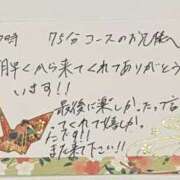 時 75分コースのお兄様へ
朝早くから来てくれてありがとう
います!!
最後に楽しかったって言
ってくれて嬉しか
ったです!!
また来て下さい!!